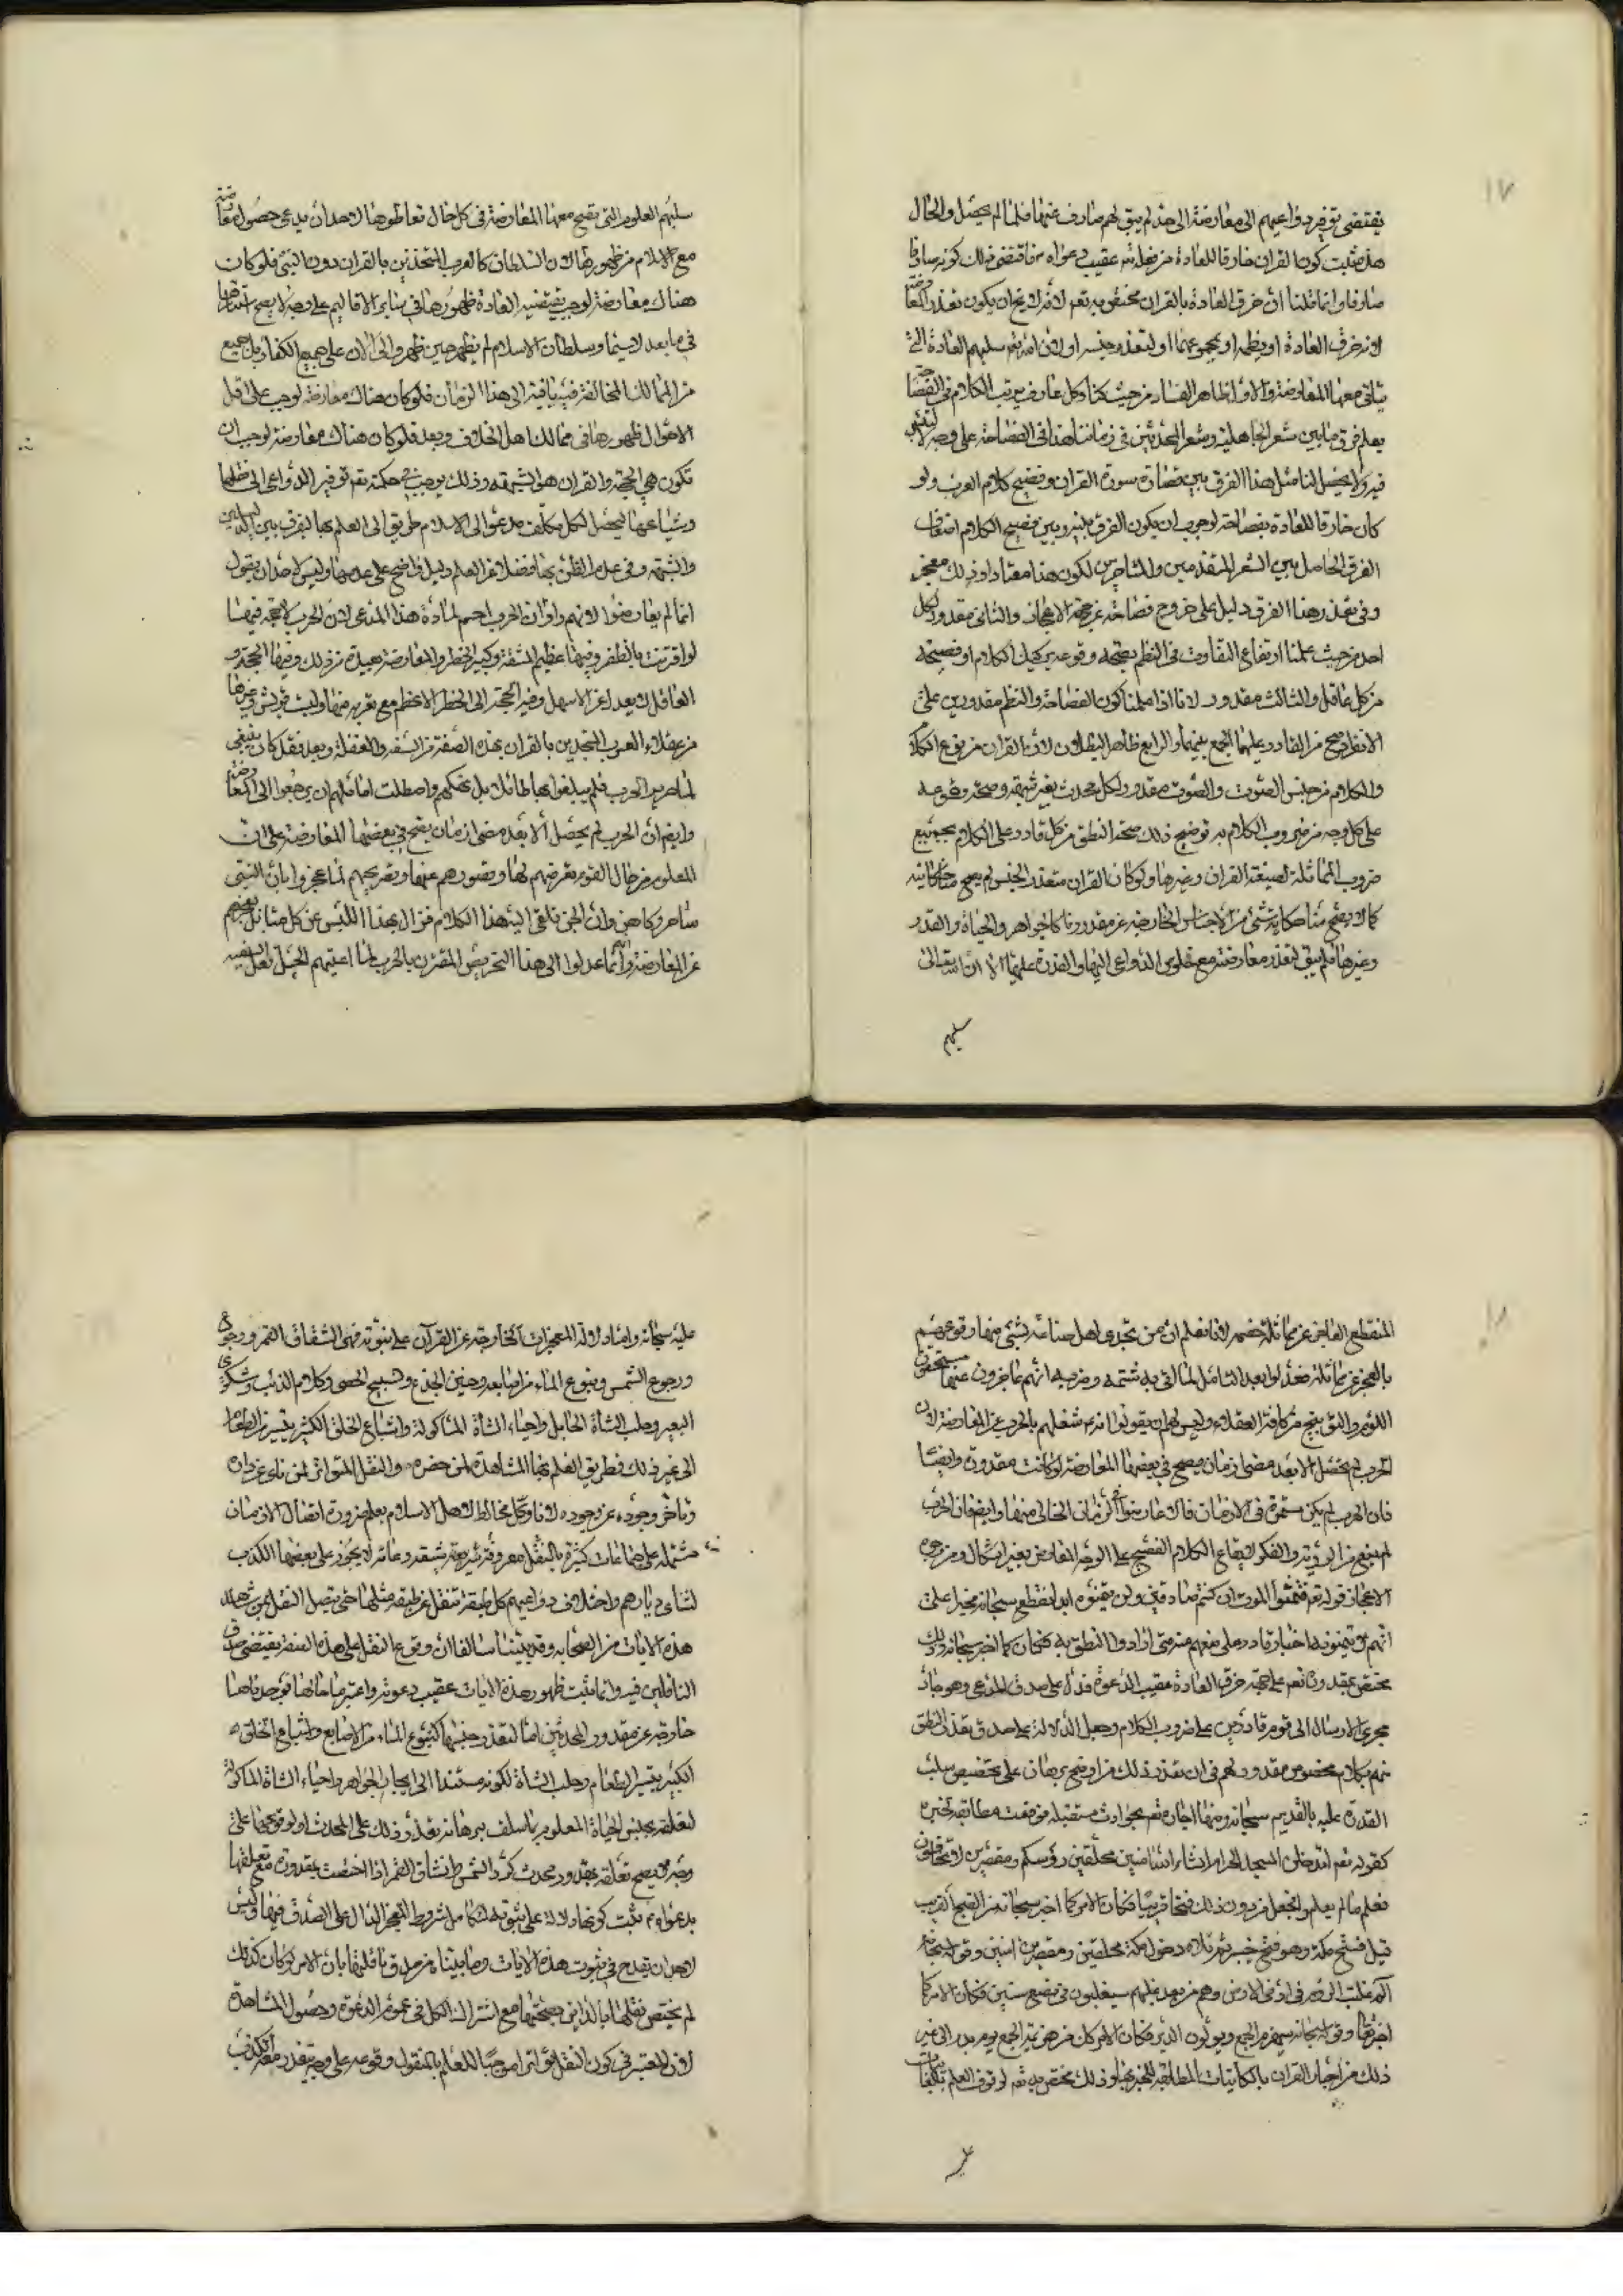 ١٧
يقتضي توفر دواعيهم الى معارضته الى حد لم يبق لهم صارف عنها فلما لم يحصل والحال
هذه ثبت كون القران خارقا للعادة من فعله تعالى عقيب دعواه فاقتضى ذلك كونه صادقا
وانما قلنا ان خرق العادة بالقران مختص به تعم لانه لا يخ ان يكون تعذر المعارضة
لانه خرق العادة او بنظمه او بمجموعهما او لتعذر جنسه او لان الله تعم سلبهم العلوم التي
يتاتى معها المعارضة والاول ظاهر الفساد من حيث كنا وكل عارف برتب الكلام في الفصاحة
يعلم فرق ما بين شعر الجاهلية وشعر المحدثين في زماننا هذا في الفصاحة على وجه لا يلتبس
فيه ولا يحصل لنا مثل هذا الفرق بين قصار سورة القران وفصيح كلام العرب ولو
كان خارقا للعادة بفصاحته لوجب ان يكون الفرق بينه وبين فصيح الكلام اضعاف
الفرق الحاصل بين الشعر المتقدمين والمتاخرين لكون هذا معتادا وذلك معجز
وفي تعذر هذا الفرق دليل على خروج فصاحته عن جهة الاعجاز والثاني مقدور لكل
احد من حيث علمنا ارتفاع التفاوت في النظم بصحة وقوعه بركيك الكلام او فصيحه
من كل عاقل والثالث مقدور لانا اذا علمنا كون الفصاحة والنظم مقدورين على
الانفراد صح من القادر عليهما الجمع بينهما والرابع ظاهر البطلان لان القران من نوع الكلام
والكلام من جنس الصوت والصوت مقدور لكل محدث بغير شبهة وصحة وقوعه
على كل وجه من ضروب الكلام به توضيح ذلك صحة النطق من كل قادر على الكلام بجميع
ضروب المماثلة لصيغة القران وغيرها ولو كان القران متعذر الجنس لم يصح منا حكايته
كما لا يصح منا حكاية شئ من الاجناس الخارجة عن مقدورنا كالجواهر والحياة والقدر
وغيرها فلم يبق لتعذر معارضته مع خلوص الدواعي اليها والقدرة عليها الا ان الله تعالى
سلبهم
سلبهم العلوم التي يصح معها المعارضة في كل حال تعاطوها لاحد ان يدعي حصول معارضة
مع الاسلام من ظهورها لان السلطان كالعرب المتحدين بالقران دون النبي فلو كان
هناك معارضة لوجب بقضية العادة ظهورها في سائر الاقاليم على وجه لا يصح استتارها
في ما بعد لاسيما وسلطان الاسلام لم يظهر حين ظهر والى الان على جميع الكفار بل جميع
من الممالك المخالفة فيه باقية الى هذا الزمان فلو كان هناك معارضة لوجب على اقل
الاحوال ظهورها في ممالك اهل الخلاف وبعد فلو كان هناك معارضة لوجب ان
تكون هي الحجة والقران هو الشبهة وذلك يوجب في حكمته تعم توفير الدواعي الى نقلها
وشياعها ليحصل لكل مكلف مدعو الى الاسلام طريق الى العلم بها ليفرق بين الدليل
والشبهة وفي عدم الظن بها فضلا عن العلم دليل واضح على عدمها وليس لاحد ان يقول
انما لم يعارضوا لانهم راوا ان الحرب احسم لمادة هذا المدعي لان الحرب لا حجة فيها
لو اقترنت بالظفر وفيها عظيم المشقة وكبير الخطر والمعارضة بعيدة من ذلك وفيها الحجة و
العاقل لا يعدل عن الاسهل وفيه الحجة الى الخطر الاعظم مع تعريه منها وليست قريش وغيرها
من عقلاء العرب المتحدين بالقران بهذه الصفة من السفه والغفلة وبعد فقد كان ينبغي
لما جربوا الحرب فلم يبلغوا بها طائلا بل نهكتهم واصطلت اماثلهم ان يرجعوا الى المعارضة
وايضم ان الحرب لم يحصل الا بعد مضي ازمان يصح في بعضها المعارضة على ان
المعلوم من حال القوم تعرضهم لها وقصورهم عنها وتصريحهم لما عجزوا بان النبي
ساحر وكاهن وان الجن تلقى اليه هذا الكلام فزال بهذا اللبس عن كل متأمل عجزهم
عن المعارضة وانهم انما عدلوا الى هذا التحريض المقترن بالحرب لما اعيتهم الحيل
١٨
المنقطع العاجز عن مماثلة خصمه لانا نعلم ان من تحدى اهل صناعة بشئ منها وقوعهم
بالعجز عن مماثلته فعدلوا بعد التامل لما اتى به شتمه وضربه انهم عاجزون عنها مستحقون
اللوم والتوبيخ من كافة العقلاء وليس لهم ان يقولوا انه شغلهم بالحرب عن المعارضة لان
الحرب لم يحصل الا بعد مضي ازمان يصح في بعضها المعارضة لو كانت مقدورة وايضا
فان الحرب لم يكن مستمرة في الازمان فالا عارضوا في الزمان الخالي منها وايضا فان الحرب
لم يمنع من الروية والفكر لايقاع الكلام الفصيح على الوجه المعارض بغير اشكال ومن وجوه
الاعجاز قوله تعم فتمنوا الموت ان كنتم صادقين ولن يتمنوه ابدا فقطع سبحانه مخبرا على
انهم لا يتمنونه اخبار قادر على منعهم منه متى ارادوا النطق به فكان كما اخبر سبحانه وذلك
مختص بمقدوره تعم على جهة خرق العادة عقيب الدعوة فدل على صدق المدعي وهو جار
مجرى الارسال الى قوم قادرين على ضروب الكلام وجعل الدلالة على صدقه تعذر النطق
منهم بكلام مخصوص مقدور لهم في ان تعذر ذلك من اوضح برهان على تخصيص سلب
القدرة عليه بالقديم سبحانه ومنها اخباره تعم بحوادث مستقبلة فوقعت مطابقة لخبره
كقوله تعم لتدخلن المسجد الحرام انشاء الله امنين محلقين رؤسكم ومقصرين لا تخافون
فعلم ما لم يعلموا فجعل من دون ذلك فتحا قريبا فكان الامر كما اخبر سبحانه من الفتح القريب
قبل فتح مكة وهو فتح خيبر ثم تلاه دخول مكة محلقين ومقصرين امنين وقوله سبحانه
الم غلبت الروم في ادنى الارض وهم من بعد غلبهم سيغلبون في بضع سنين فكان الامر كما
اخبر تعم وقوله سبحانه سيهزم الجمع ويولون الدبر فكان الامر كذلك من هزيمة الجمع يوم بدر الى غير
ذلك من اخبار القران بالكائنات المطابقة للخبر بها وذلك مختص به تعم لوقوف العلم بالكائنات
عليه
عليه سبحانه واما دلالة المعجزات الخارجة عن القرآن على نبوته فهي انشقاق القمر
ورجوع الشمس ونبوع الماء من اصابعه وحنين الجذع وتسبيح الحصى وكلام الذئب وشكوى
البعير وحلب الشاة الحايل واحياء الشاة الماكولة واشباع الخلق الكثير بيسير الطعام
الى غير ذلك فطريق العلم بها المشاهدة لمن حضره والنقل المتواتر لمن ناى عن داره
وتاخر وجوده عن وجوده لانا وكل مخالط لاهل الاسلام يعلم ضرورة اتصال الازمان
مشتملة على جماعات كثيرة بالنقل معروفة لا يجوز على بعضها الكذب
لتنائي ديارهم واختلاف دواعيهم كل طبقة تنقل عن طبقة مثلها حتى يتصل النقل بمن شهد
هذه الايات من الصحابة وقد بينا سالفا ان وقوع النقل على هذه الصفة يقتضي صدق
الناقلين فيه وانما ثبت ظهور هذه الايات عقيب دعوته واعتبرنا حالها فوجدناها
خارجة عن مقدور المحدثين اما لتعذر جنسها كنبوع الماء من الاصابع واشباع الخلق
الكثير بيسير الطعام وحلب الشاة لكونه مستندا الى ايجاب الجواهر واحياء الشاة الماكولة
لتعلقه بجنس الحياة المعلوم بما سلف برهانه تعذر ذلك على المحدث او لوقوعها على
وجه لا يصح تعلقه بمقدور محدث كرد الشمس وانشقاق القمر اذا اختصت بمقدوره مع تعلقها
بدعواه ثبت كونها دلالة على نبوته لتكامل شروط المعجز الدال على الصدق فيها وليس
لاحد ان يقدح في ثبوت هذه الايات وما بيناه من صدق ناقليها بان الامر لو كان كذلك
لم يختص نقلها بالدائن بصحتها مع اشتراك الكل في عموم الدعوة وحصول المشاهدة
لان المعتبر في كون النقل متواترا موجبا للعلم بالمنقول وقوعه على وجه يتعذر معه الكذب